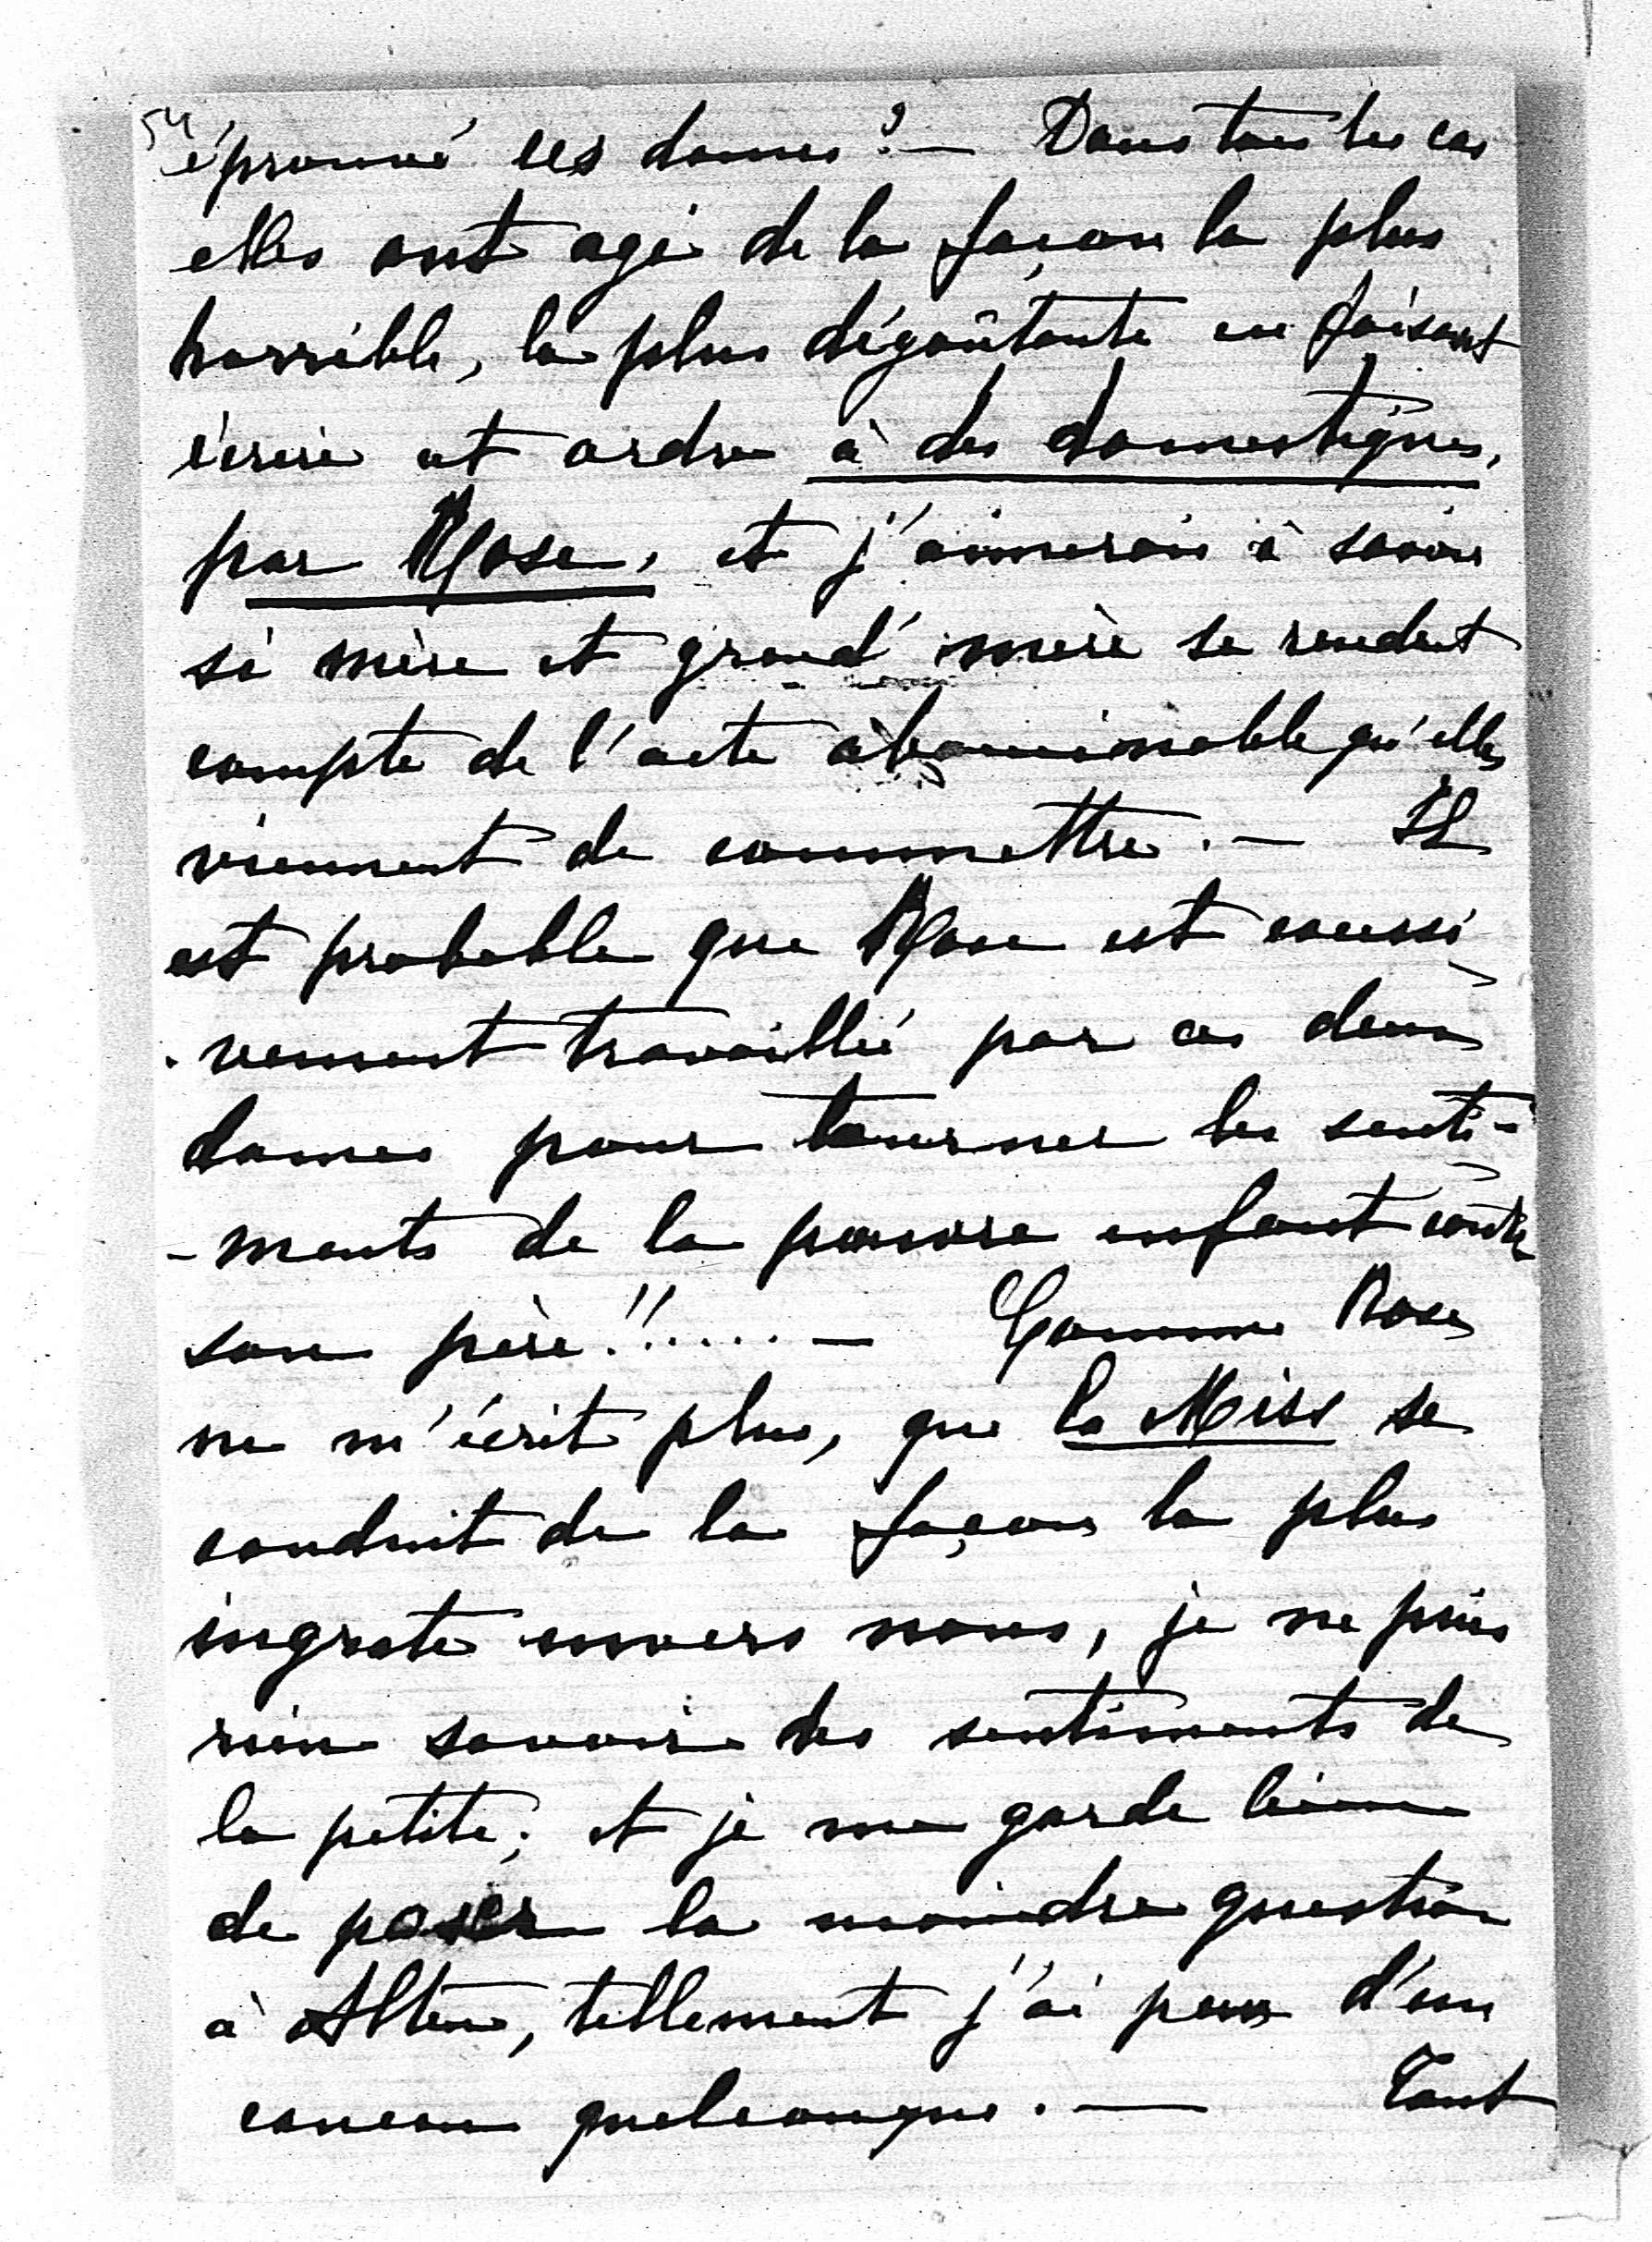 54
éprouvé ces dames? — Dans tous les cas
elles ont agi de la façon la plus
horrible, la plus dégoûtante en faisant
écrire cet ordre à des domestiques,
par Rose, et j'aimerais à savoir
si mère et grand'mère se rendent
compte de l'acte abominable qu'elles
viennent de commettre. — Il
est probable que Rose est
travaillée par ces deux
dames pour tourner les senti-
-ments de la pauvre enfant contre
son père!!..... — Comme Rose
ne m'écrit plus, que la Miss se
conduit de la façon la plus
ingrate envers nous, je ne puis
rien savoir des sentiments de
la petite; et je me garde bien
de poser la moindre question
à , tellement j'ai peur d'un
cancan quelconque. — Tant